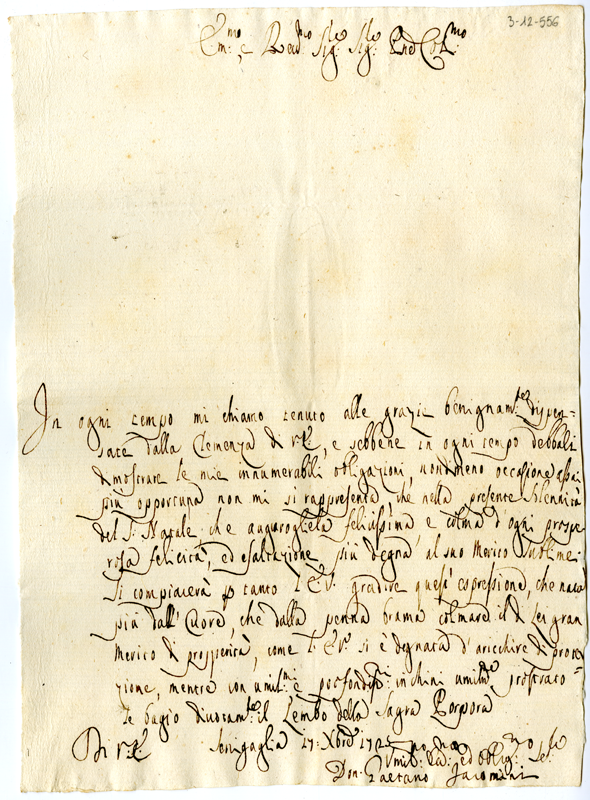 3-12-556
Em:mo e Reu:mo Sig:re Sig:re Pne Col:mo
In ogni tempo mi chiamo tenuto alle grazie benignam:te dispen=
sate dalla Clemenza di V:E:, e sebbene in ogni tempo debbali
dimostrare le mie innumerabili obligazioni, nondimeno occasione assai
più opportuna non mi si rappresenta che nella presente Solennità
del S: Natale, che augurogliela felicissima e colma d'ogni prospe
rosa felicità, ed esaltazione più degna al suo Merito Sublime:
Si compiacerà p tanto l'E:V: gradire quest'espressione, che nata
più dall'Cuore, che dalla penna brama colmare il di Lei gran
Merito di prosperità, come l'E:V: si è degnata d'aricchire di prote
zione, mentre con umil:mi e profondi:mi inchini umilm:te prostrato
le bagio diuotam:te il Lembo della Sagra Porpora
Di V:E: Senigaglia 17: Xbre
Don Gaetano Giacomini